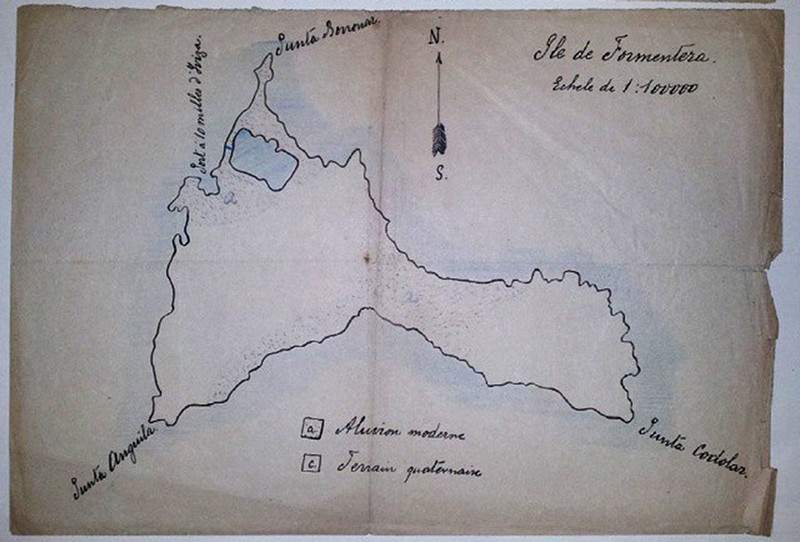 Punta Borronar.
Port à 10 milles d'Iviza.
N.
S.
Ile de Formentera.
Echele de 1:100000
a
a
a Aluvion moderne
c Terrain quaternaire
Punta Anguila
Punta Codolar.